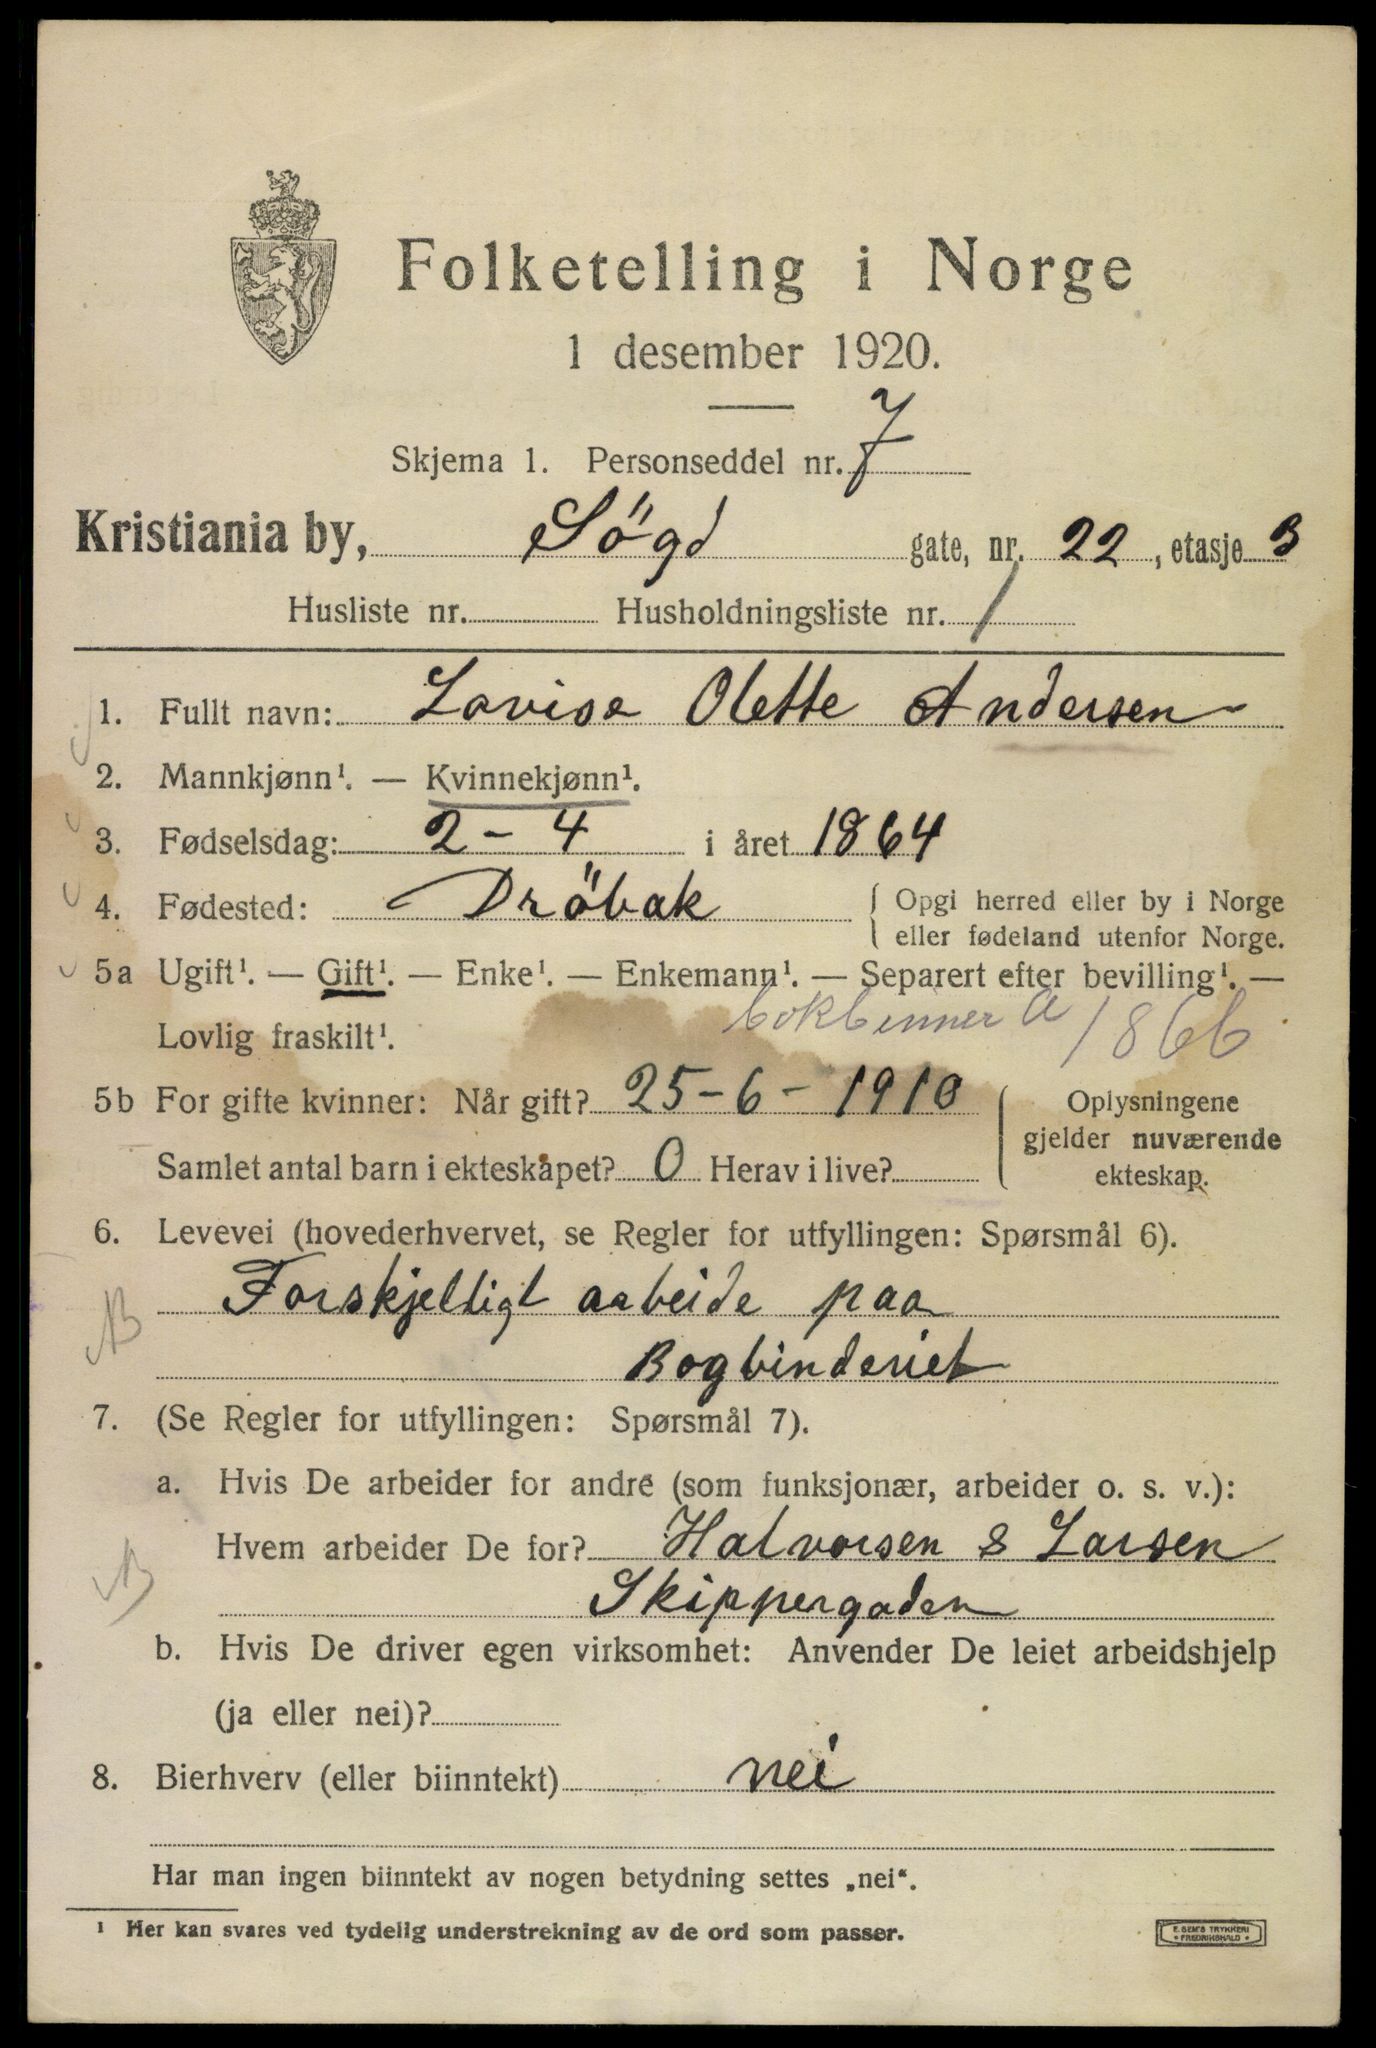 Folketelling i Norge
1 desember 1920.
Skjema 1. Personseddel nr. 7
Kristiania by, Sögd gate, nr. 22, etasje 3
Husliste nr. Husholdningsliste nr. 1
1. Fullt navn: Lovise Olette Andersen
2. Mannkjønn¹. — Kvinnekjønn¹.
3. Fødselsdag: 2 - 4 i året 1864
4. Fødested: Dröbak { Opgi herred eller by i Norge
eller fødeland utenfor Norge.
5a Ugift¹. — Gift¹. — Enke¹. — Enkemann¹. — Separert efter bevilling¹. —
Lovlig fraskilt¹. bokbinner a 1866
5b For gifte kvinner: Når gift? 25 - 6 - 1910
Samlet antal barn i ekteskapet? 0 Herav i live?
Oplysningene
gjelder nuværende
ekteskap.
6. Levevei (hovederhvervet, se Regler for utfyllingen: Spørsmål 6).
Forskjelligt aabeide paa
Bogbinderiet
7. (Se Regler for utfyllingen: Spørsmål 7).
a. Hvis De arbeider for andre (som funksjonær, arbeider o. s. v.):
Hvem arbeider De for? Halvorsen & Larsen
Skippergaden
b. Hvis De driver egen virksomhet: Anvender De leiet arbeidshjelp
(ja eller nei)?
8. Bierhverv (eller biinntekt) nei
Har man ingen biinntekt av nogen betydning settes „nei“.
¹ Her kan svares ved tydelig understrekning av de ord som passer.
E. SEM'S TRYKKERI
• FREDRIKSHALD •